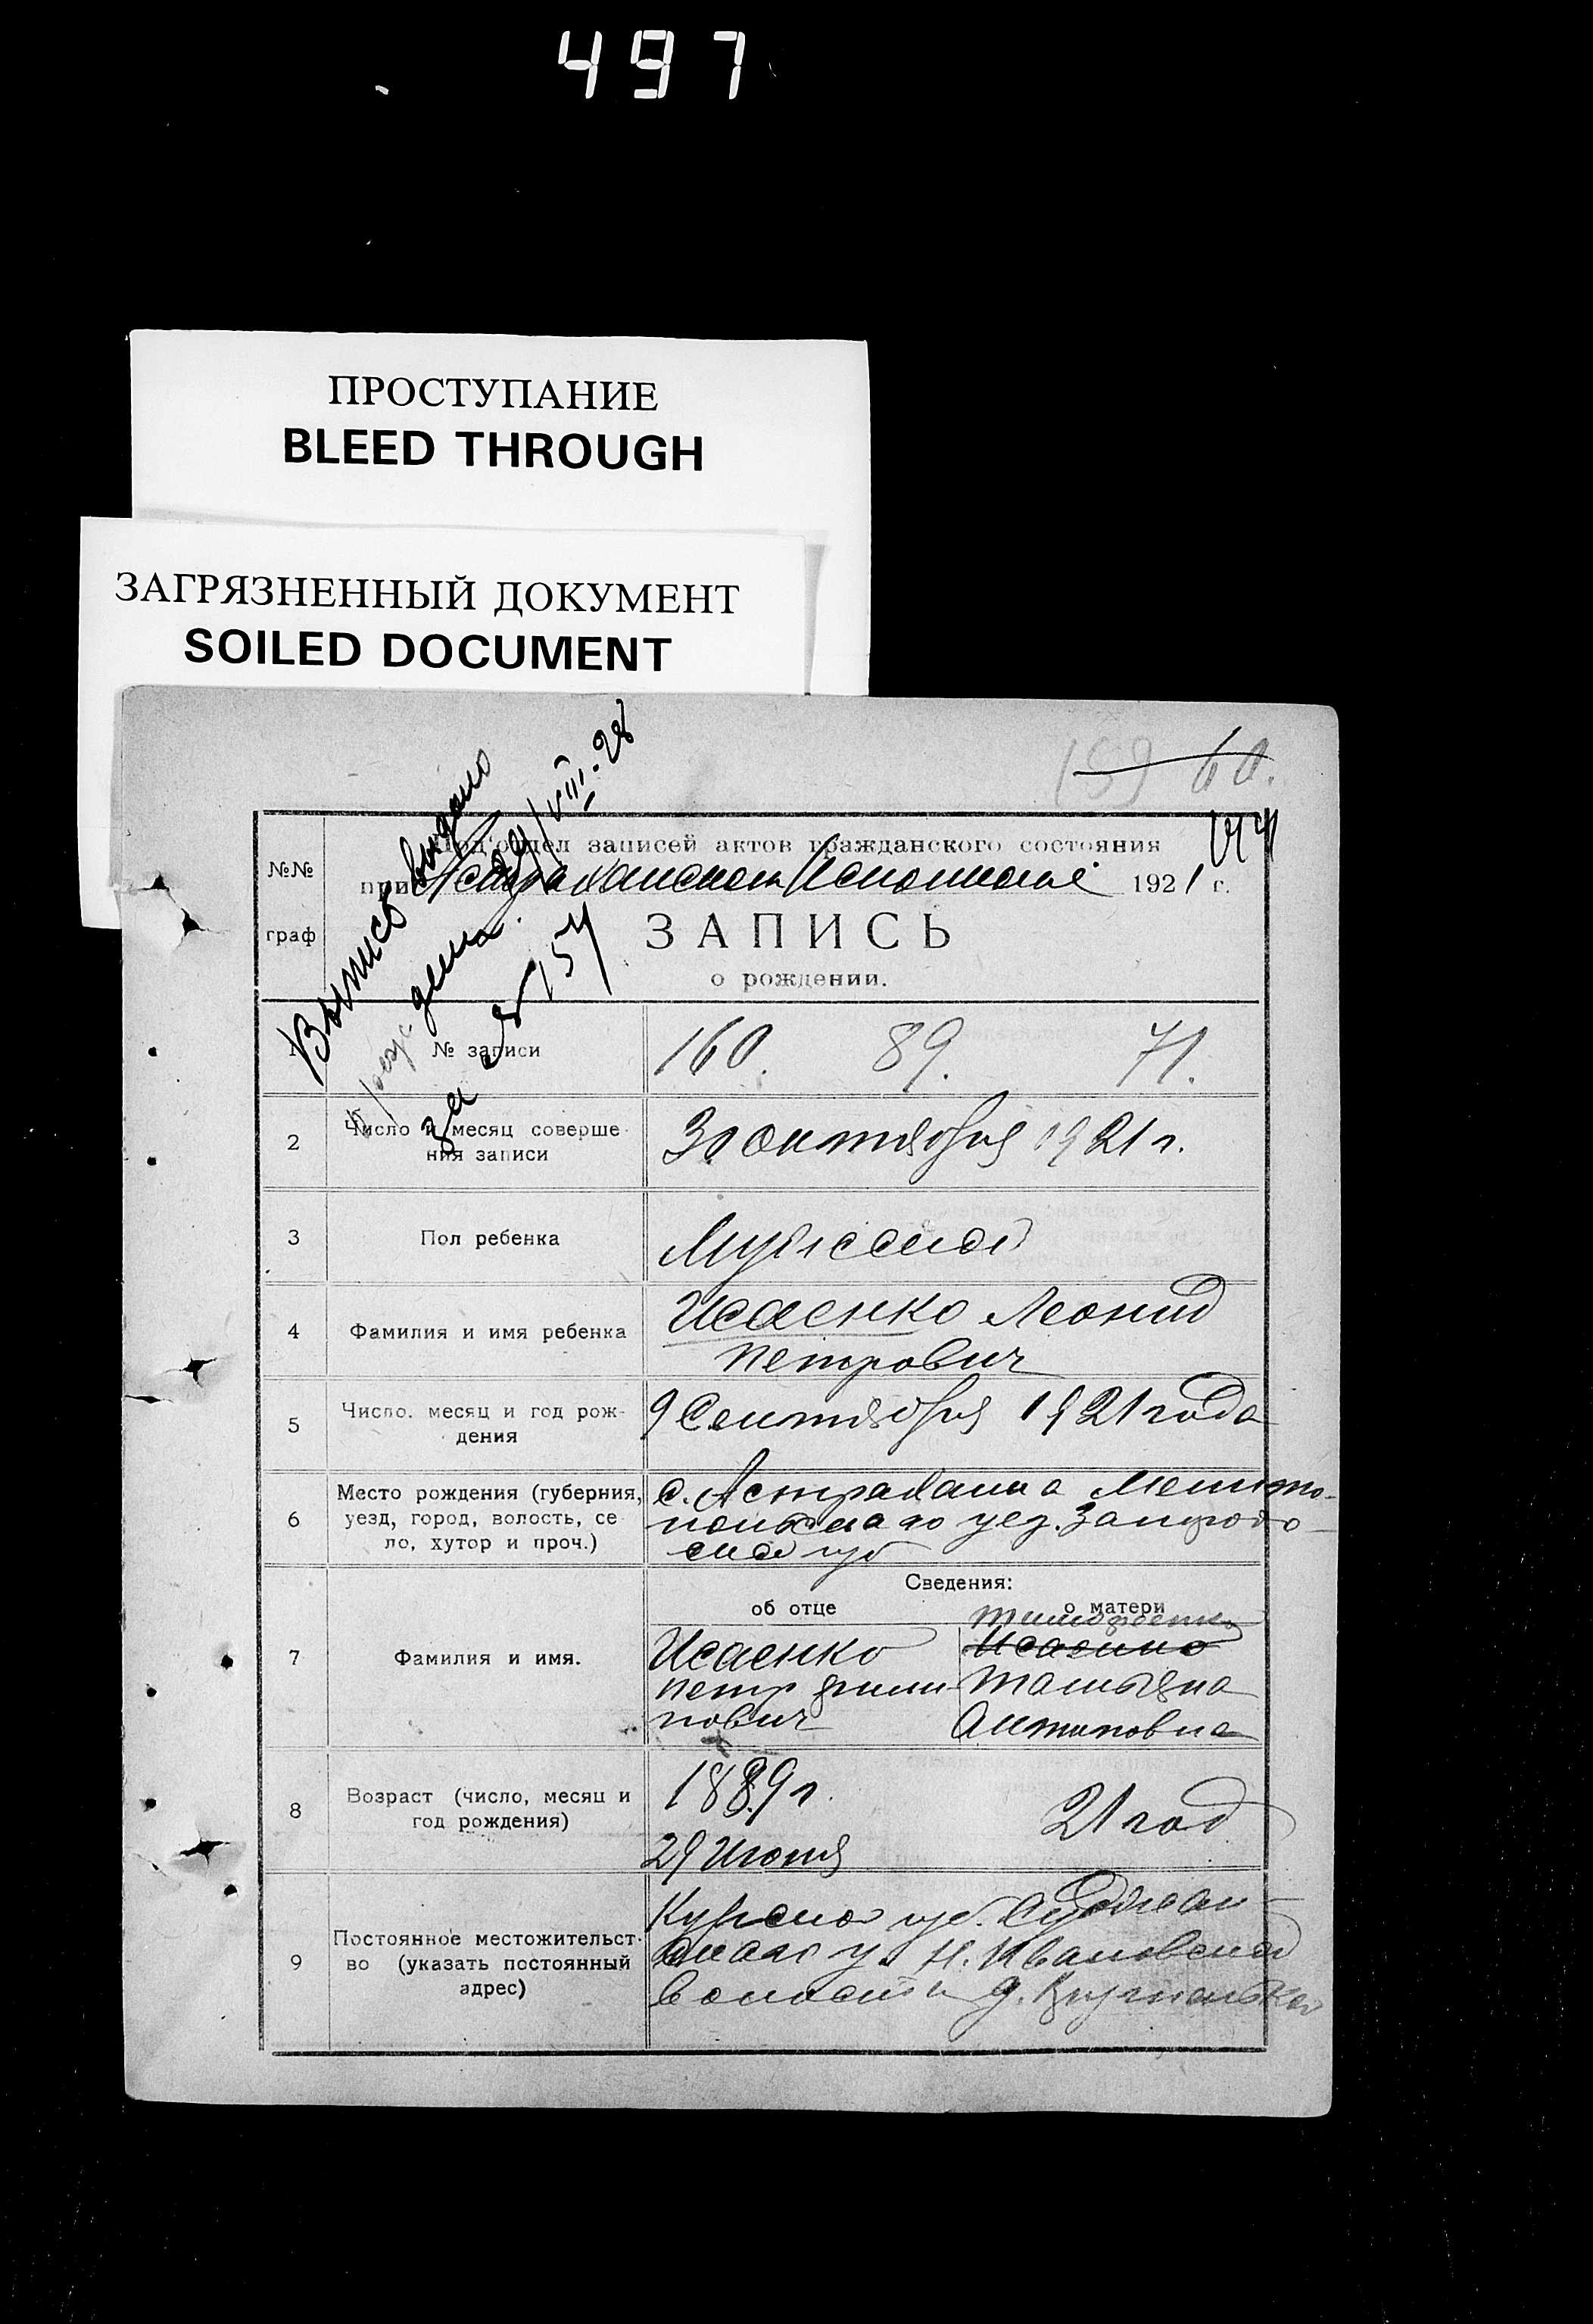 497
ПРОСТУПАНИЕ
BLEED THROUGH
ЗАГРЯЗНЕННЫЙ ДОКУМЕНТ
SOILED DOCUMENT
159 60.
Выпись выдано
VIII-28
за № 154
№№
граф
Под'отдел записей актов гражданского состояния
при Астраханском Исполкоме 1921 г.
ЗАПИСЬ
о рождении.
1 № записи 160. 89. 71.
2 Число и месяц соверше-
ния записи
30 октября 1921 г.
3 Пол ребенка Мужской
4 Фамилия и имя ребенка
Исаенко Леонид
Петрович
5 Число. месяц и год рож-
дения
9 Сентября 1921 года
6 Место рождения (губерния,
уезд, город, волость, се
ло, хутор и проч.)
с. Астраханка Мелито-
польскаго уез. Запорож
ской губ
Сведения:
об отце о матери
7 Фамилия и имя.
Исаенко
Петр Фили
пович
Тимофеенко
Исаенко
Татьяна
Антиповна
8 Возраст (число, месяц и
год рождения)
1889 г.
29 Июня
21 год
9 Постоянное местожительст-
во (указать постоянный
адрес)
Курской губ. Суджан-
скаго у. Н. Ивановской
волости д.